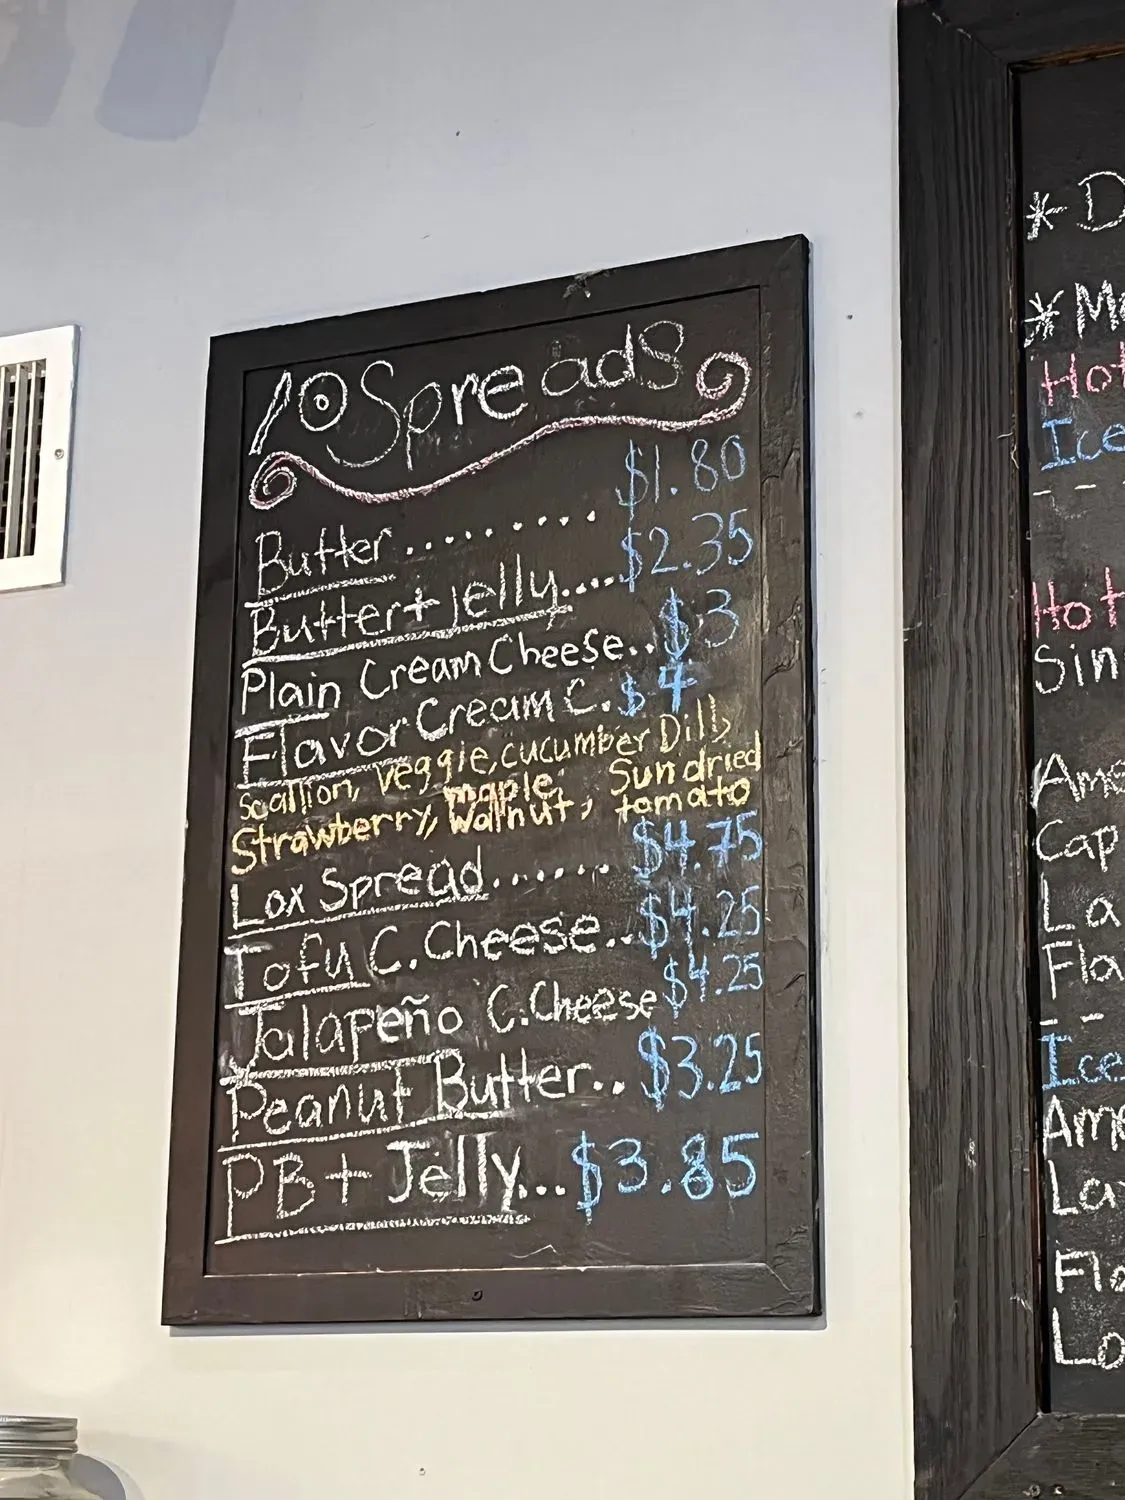 Spreads
Butter......... $1.80
Butter + jelly.... $2.35
Plain Cream Cheese.. $3
Flavor Cream C. $4
Scallion, veggie, cucumber Dill,
Strawberry, maple Walnut, Sun dried tomato
Lox Spread....... $4.75
Tofu C. Cheese.. $4.25
Jalapeño C. Cheese $4.25
Peanut Butter.. $3.25
PB + Jelly... $3.85
Hot
Hot